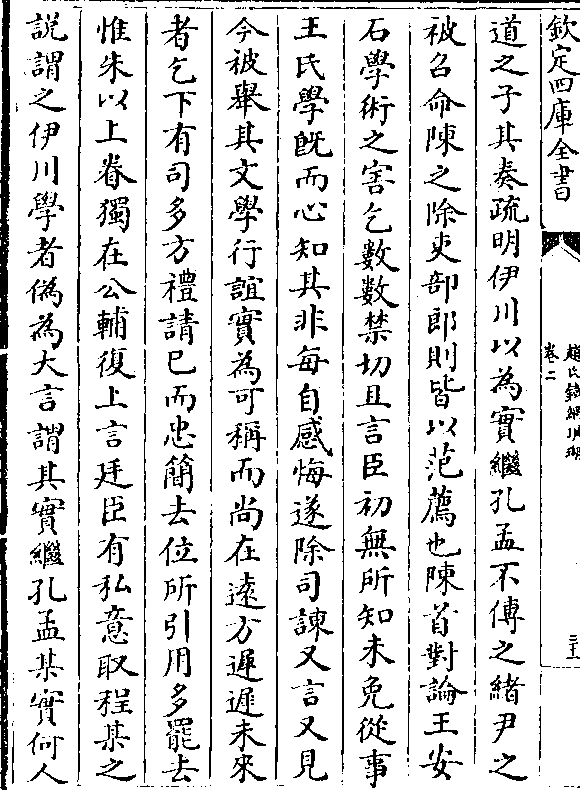 欽定四庫全書
趙氏鐵網珊瑚
卷二
道之子其奏疏明伊川以為實繼孔孟不傳之緒尹之
被召命陳之除吏部郎則皆以范薦也陳首對論王安
石學術之害乞數數禁切且言臣初無所知未免從事
王氏學既而心知其非每自感悔遂除司諫又言又見
今被舉其文學行誼實為可稱而尚在遠方遲遲未來
者乞下有司多方禮請已而忠簡去位所引用多罷去
惟朱以上眷獨在公輔復上言廷臣有私意取程某之
說謂之伊川學者偽為大言謂其實繼孔孟某實何人